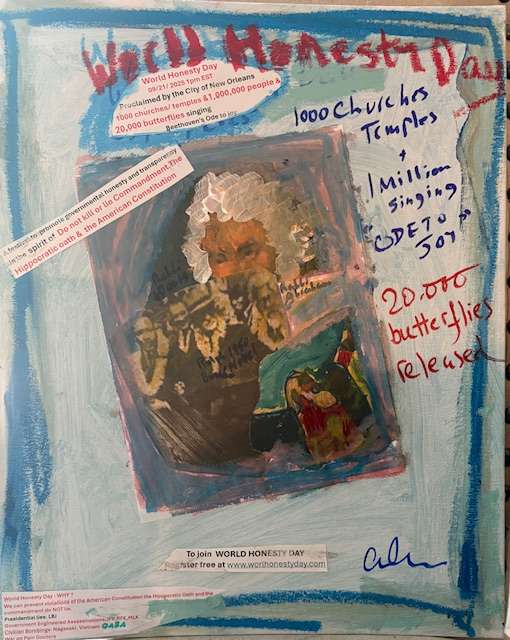 World Honesty Day
World Honesty Day
09/21/ 2025 1pm EST
Proclaimed by the City of New Orleans
1000 churches/ temples &1,000,000 people &
20,000 butterflies singing
Beethoven's Ode to joy
1000 Churches
Temples
+
1 Million
singing
"ODE TO
JOY"
A festival to promote governmental honesty and transparency
in the spirit of Do not kill or lie Commandment,The
Hippocratic oath & the American Constitution
20.000
butterflies
released
To join WORLD HONESTY DAY
Register free at www.worlhonestyday.com
World Honesty Day - WHY ?
We can prevent violations of the American Constitution the Hippocratic Oath and the
commandment do NOT lie.
Presidential lies: LBJ
Government Engineered Assassinations: JFK, RFK, MLK
Civilian Bombings: Nagasaki, Vietnam GAZA
War on Pain Doctors